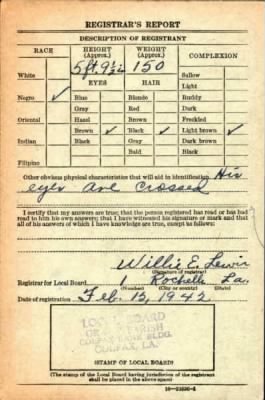 REGISTRAR'S REPORT
DESCRIPTION OF REGISTRANT
RACE HEIGHT (Approx.) WEIGHT (Approx.) COMPLEXION
White 5 ft. 9½ in 150 Sallow
EYES HAIR Light
Negro ✓ Blue Blonde Ruddy
Gray Red Dark
Oriental Hazel Brown Freckled
Brown ✓ Black ✓ Light brown ✓
Indian Black Gray Dark brown
Bald Black
Filipino
Other obvious physical characteristics that will aid in identification His
eyes are crossed
I certify that my answers are true; that the person registered has read or has had
read to him his own answers; that I have witnessed his signature or mark and that
all of his answers of which I have knowledge are true, except as follows:
Willie E. Lewis
(Signature of registrar)
Registrar for Local Board 1 Rochelle La.
(Number) (City or county) (State)
Date of registration Feb. 15, 1942
LOCAL BOARD
PARISH
BANK BLDG.
COLFAX, LA.
STAMP OF LOCAL BOARD
(The stamp of the Local Board having jurisdiction of the registrant
shall be placed in the above space.)